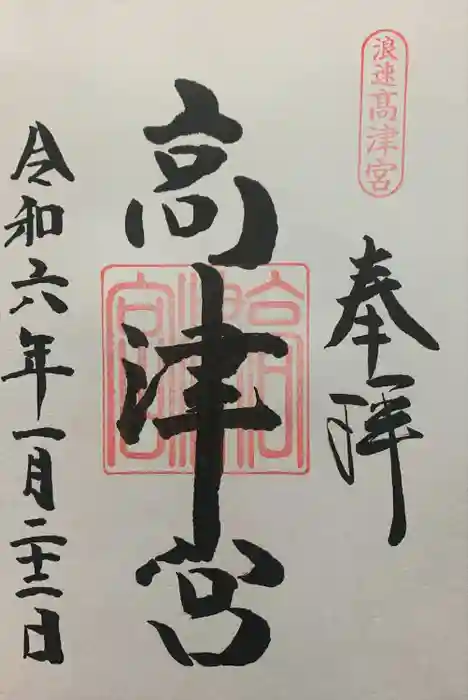 浪速高津宮
奉拝
高津宮
高津宮
令和六年一月二十二日